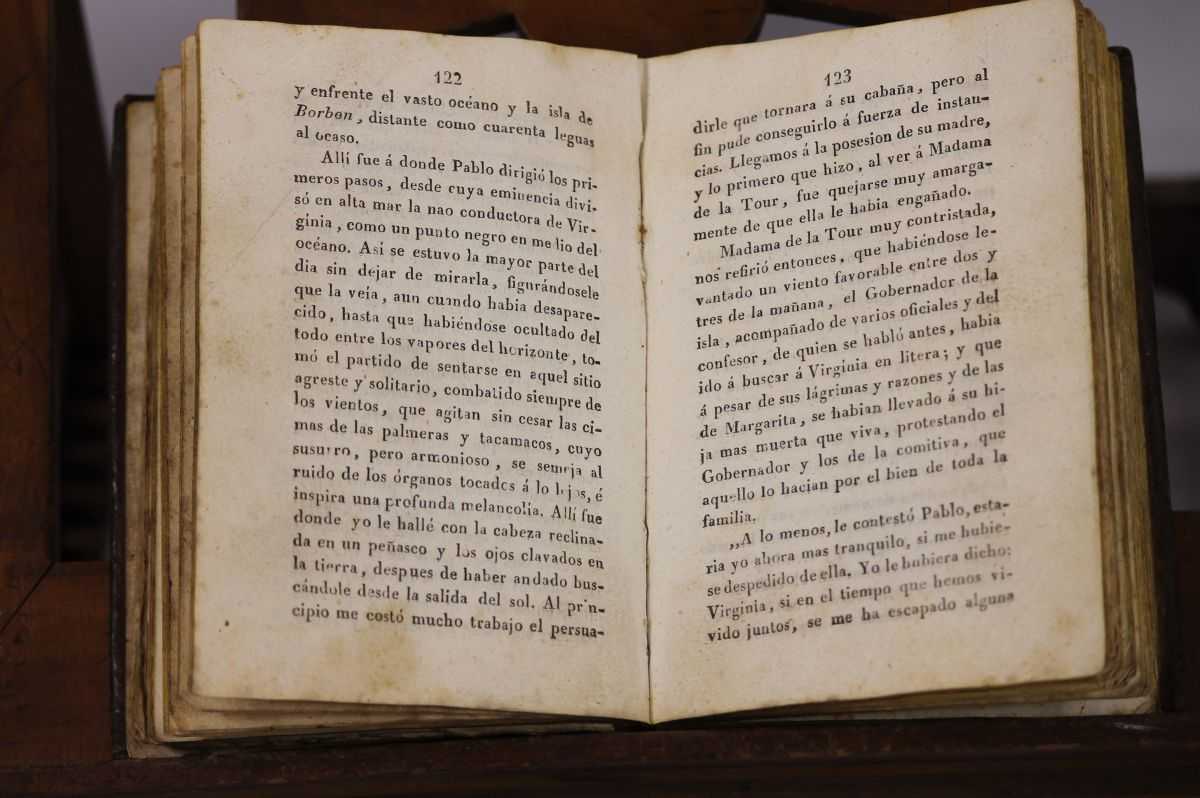 122
y enfrente el vasto océano y la isla de
Borbon, distante como cuarenta leguas
al ocaso.
Allí fue á donde Pablo dirigió los pri-
meros pasos, desde cuya eminencia divi-
só en alta mar la nao conductora de Vir-
ginia, como un punto negro en medio del
océano. Asi se estuvo la mayor parte del
dia sin dejar de mirarla, figurándosele
que la veía, aun cuando habia desapare-
cido, hasta que habiéndose ocultado del
todo entre los vapores del horizonte, to-
mó el partido de sentarse en aquel sitio
agreste y solitario, combatido siempre de
los vientos, que agitan sin cesar las ci-
mas de las palmeras y tacamacos, cuyo
susurro, pero armonioso, se semeja al
ruido de los órganos tocados á lo lejos, é
inspira una profunda melancolía. Allí fue
donde yo le hallé con la cabeza reclina-
da en un peñasco y los ojos clavados en
la tierra, despues de haber andado bus-
cándole desde la salida del sol. Al prin-
cipio me costó mucho trabajo el persua-
123
dirle que tornara á su cabaña, pero al
fin pude conseguirlo á fuerza de instan-
cias. Llegamos á la posesion de su madre,
y lo primero que hizo, al ver á Madama
de la Tour, fue quejarse muy amarga-
mente de que ella le habia engañado.
Madama de la Tour muy contristada,
nos refirió entonces, que habiéndose le-
vantado un viento favorable entre dos y
tres de la mañana, el Gobernador de la
isla, acompañado de varios oficiales y del
confesor, de quien se habló antes, habia
ido á buscar á Virginia en litera; y que
á pesar de sus lágrimas y razones y de las
de Margarita, se habian llevado á su hi-
ja mas muerta que viva, protestando el
Gobernador y los de la comitiva, que
aquello lo hacian por el bien de toda la
familia.
,,A lo menos, le contestó Pablo, esta-
ria yo ahora mas tranquilo, si me hubie-
se despedido de ella. Yo le hubiera dicho:
Virginia, si en el tiempo que hemos vi-
vido juntos, se me ha escapado alguna